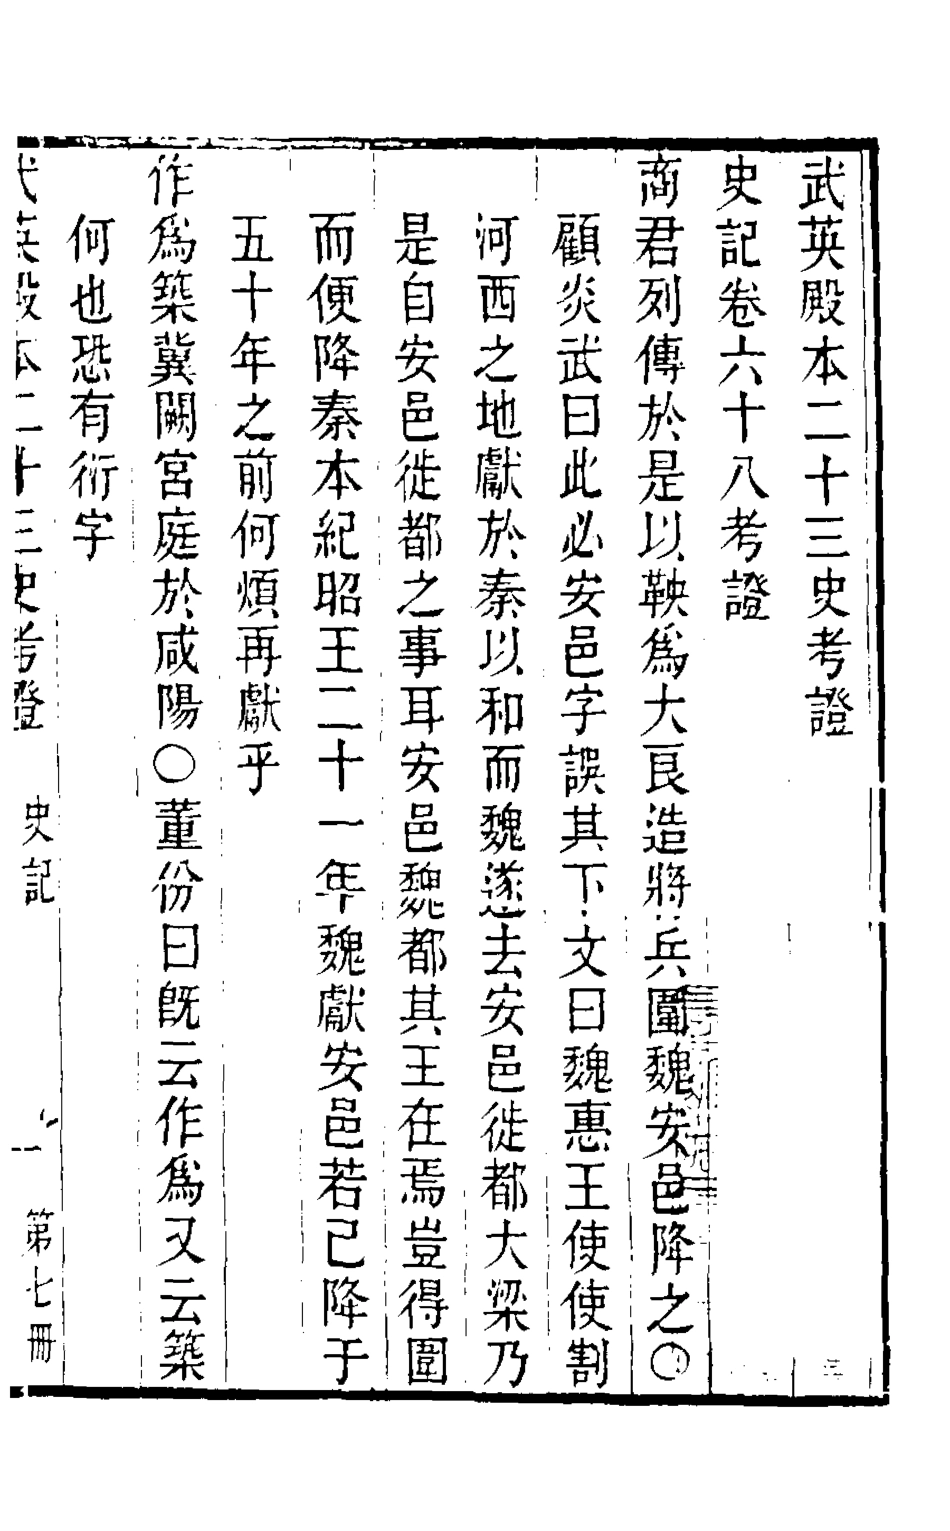 武英殿本二十三史考證
史記卷六十八考證
商君列傳於是以鞅爲大良造將兵圍魏安邑降之〇
顧炎武曰此必安邑字誤其下文曰魏惠王使使割
河西之地獻於秦以和而魏遂去安邑徙都大梁乃
是自安邑徙都之事耳安邑魏都其王在焉豈得圍
而便降秦本紀昭王二十一年魏獻安邑若已降于
五十年之前何煩再獻乎
作爲築冀闕宮庭於咸陽〇董份曰旣云作爲又云築
何也恐有衍字
武英殿本二十三史考證 史記 一 第七冊